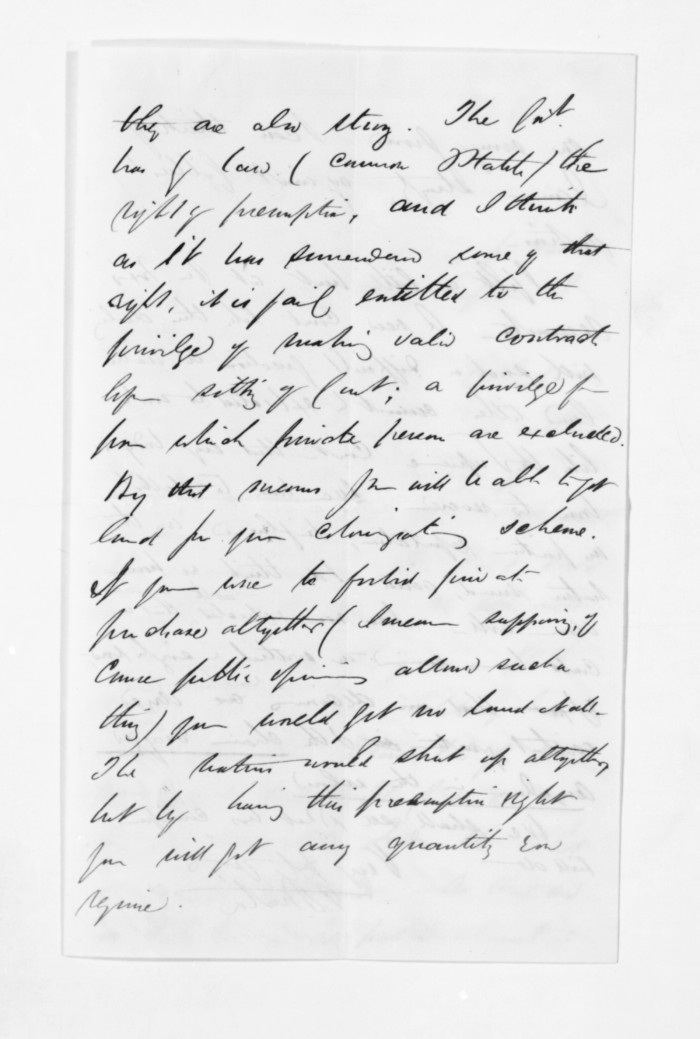 they are also strong. The Govt.
has by law (common & Statute) the
right of preemption, and I think
as it has surrendered some of that
right, it is fairly entitled to the
privilege of making valid contracts
before sitting of Court; a privilege
from which private persons are excluded.
By that means you will be able to get
land for your colonizating scheme.
If you were to forbid private
purchase altogether (I mean supposing, of
course public opinion allowed such a
thing) you would get no land at all.
The natives would shut up altogether,
but by having this preemptive right
you will get any quantity you
require.